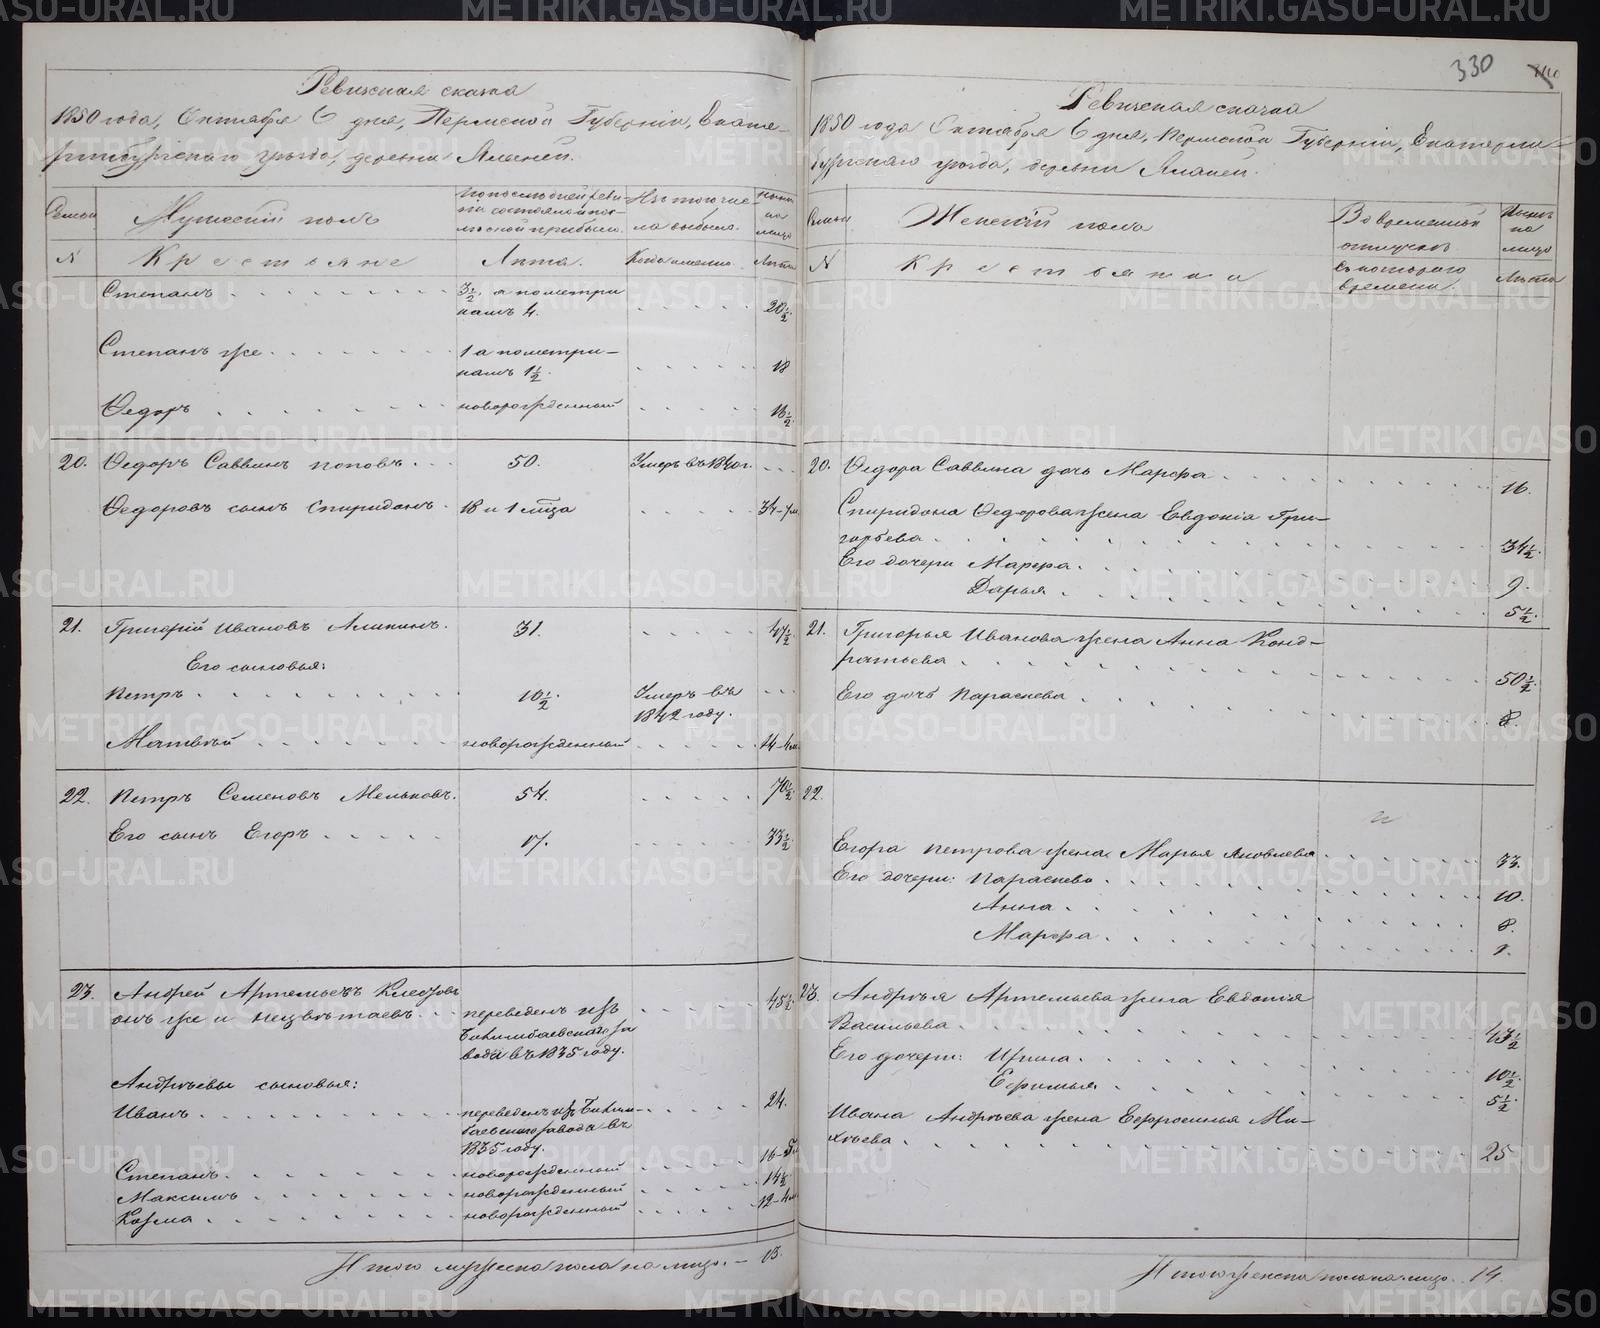 330
Ревижская сказка
1850 года, Октября 6 дня, Пермской Губерніи, Екате-
ринбургскаго уѣзда, деревни
Семьи
Мужескій полъ
По послѣдней реви-
зіи состояло и по-
слѣ оной прибыло.
Изъ того чис-
ла выбыло.
Нынѣ
на
лицо
N
Крестьяне
Лѣта.
Когда именно.
Лѣта
Степанъ
3½, а по метри
камъ 4.
20½.
Степанъ же
1 а по метри-
камъ 1½.
18
Ѳедоръ
новорожденный
16½.
20. Ѳедоръ Саввинъ Поповъ
50.
Умеръ въ 1840 г.
Ѳедоровъ сынъ Спиридонъ
18 и 1 мѣсяца
34-7 м.
21. Григорій Ивановъ
31.
47½
Его сыновья:
Петръ
10½.
Умеръ въ
1842 году.
Матвѣй
новорожденный
14-4 м.
22. Петръ Семеновъ Мельковъ.
54.
70½
Его сынъ Егоръ
17.
33½
23. Андрей Артемьевъ
онъ же и
переведенъ изъ
Билимбаевскаго за
вода въ 1835 году.
45½
Андреевы сыновья:
Иванъ
переведенъ изъ Билим-
баевскаго завода въ
1835 году.
24.
Степанъ
новорожденный
16-5 м
Максимъ
новорожденный
14½
Козма
новорожденный
12-4 м
Итого мужеска пола на лицо. - 13.
Ревижская сказка
1850 года Октября 6 дня, Пермской Губерніи, Екатерин-
бургскаго уѣзда, деревни
Семьи
Женскій полъ
Во временной
отлучкѣ
Нынѣ
на
лицо
N
Крестьянки
съ котораго
времени.
Лѣта
20. Ѳедора Саввина дочь Марфа
16.
Спиридона Ѳедорова жена Евдокія Гри-
горьева
34½.
Его дочери Марфа
9.
Дарья
5½
21. Григорья Иванова жена Анна Конд-
ратьева
50½.
Его дочь Параскева
8.
22.
Егора Петрова жена Марья Яковлева
33.
Его дочери: Параскева
10.
Анна
8.
Марфа
23. Андрея Артемьева жена Евдокія
Васильева
43½
Его дочери: Ирина
10½.
Ефимья
5½
Ивана Андреева жена Ефросинья Ми-
хѣева
25
Итого женска пола на лицо. 14.
METRIKI.GASO-URAL.RU